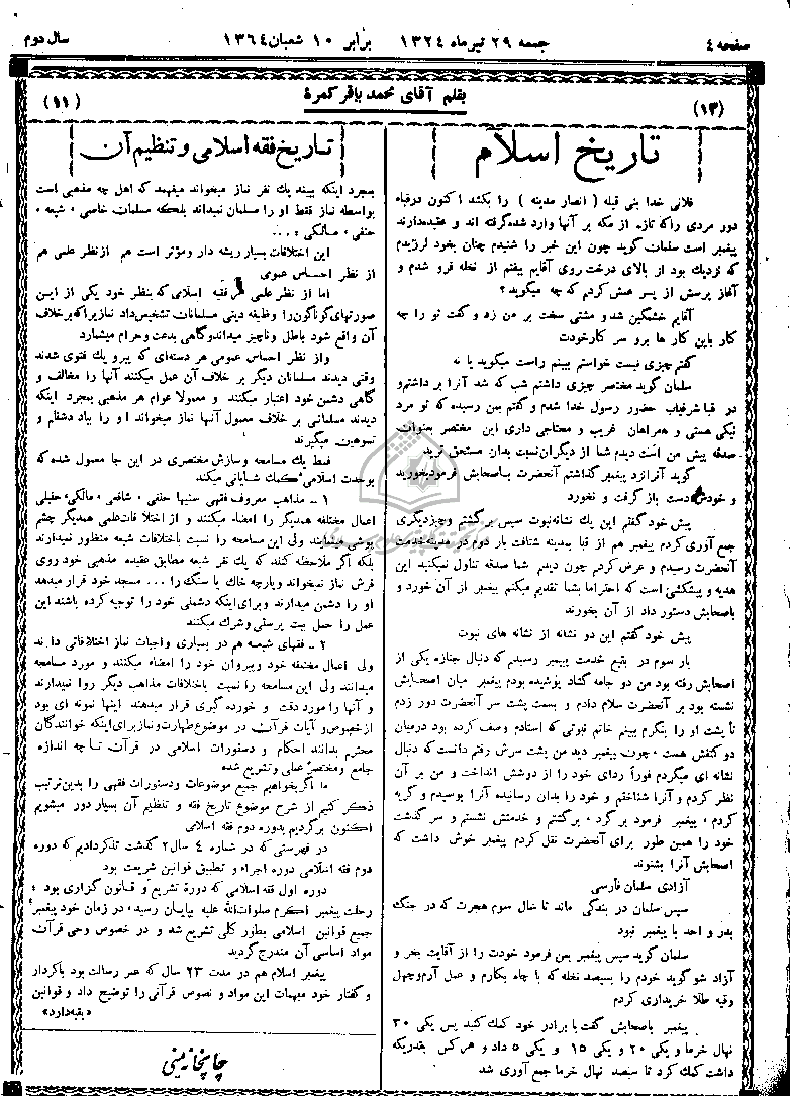 صفحه ۴
جمعه ۲۹ تیر ماه ۱۳۲۴ برابر ۱۰ شعبان ۱۳۶۴
سال دوم
بقلم آقای محمد باقر کمرهٔ
(۱۳)
تاریخ اسلام
فلانی خدا بنی قیله ( انصار مدینه ) را بکشد اکنون در قباء
دور مردی را که تازه از مکه بر آنها وارد شده گرفته اند و عقیده دارند
پیغمبر است سلمان گوید چون این خبر را شنیدم چنان بخود لرزیدم
که نزدیك بود از بالای درخت روی آقایم بیفتم از نخله فرو شدم و
آغاز پرسش از پسر عمش کردم که چه میگوید؟
آقایم خشمگین شد و مشتی سخت بر من زد و گفت تو را چه
کار باین کار ها برو سر کار خودت
گفتم چیزی نیست خواستم ببینم راست میگوید یا نه
سلمان گوید مختصر چیزی داشتم شب که شد آنرا برداشتم و
در قبا شرفیاب حضور رسول خدا شدم و گفتم بمن رسیده که تو مرد
نیکی هستی و همراهان غریب و محتاجی داری این مختصر بعنوان
صدقه پیش من است دیدم شما از دیگران نسبت بدان مستحق ترید
گوید آنرا نزد پیغمبر گذاشتم آنحضرت باصحابش فرمود بخورید
و خودش دست باز گرفت و نخورد
پیش خود گفتم این یك نشانه نبوت سپس برگشتم و چیز دیگری
جمع آوری کردم پیغمبر هم از قبا بمدینه شتافت بار دوم در مدینه خدمت
آنحضرت رسیدم و عرض کردم چون دیدم شما صدقه تناول نمیکنید این
هدیه و پیشکشی است که احتراما بشما تقدیم میکنم پیغمبر از آن خورد و
باصحابش دستور داد از آن بخورند
پیش خود گفتم این دو نشانه از نشانه های نبوت
بار سوم در بقیع خدمت پیغمبر رسیدم که دنبال جنازه یکی از
اصحابش رفته بود من دو جامه گشاد پوشیده بودم پیغمبر میان اصحابش
نشسته بود بر آنحضرت سلام دادم و بسمت پشت سر آنحضرت دور زدم
تا پشت او را بنگرم ببینم خاتم نبوتی که استادم وصف کرده بود در میان
دو کتفش هست، چون پیغمبر دید من پشت سرش رفتم دانست که دنبال
نشانه ای میگردم فوراً ردای خود را از دوشش انداخت و من بر آن
نظر کردم و آنرا شناختم و خود را بدان رسانیده آنرا بوسیدم و گریه
کردم، پیغمبر فرمود برگرد، برگشتم و خدمتش نشستم و سر گذشت
خود را همین طور برای آنحضرت نقل کردم پیغمبر خوش داشت که
اصحابش آنرا بشنوند
آزادی سلمان فارسی
سپس سلمان در بندگی ماند تا حال سوم هجرت که در جنگ
بدر و احد با پیغمبر نبود
سلمان گوید سپس پیغمبر بمن فرمود خودت را از آقایت بخر و
آزاد شو گوید خودم را بسیصد نخله که با چاه بکارم و عمل آرم و چهل
وقیه طلا خریداری کردم
پیغمبر باصحابش گفت با برادر خود کمك کنید پس یکی ۳۰
نهال خرما و یکی ۲۰ و یکی ۱۵ و یکی ۵ داد و هر کس بقدریکه
داشت کمك کرد تا سیصد نهال خرما جمع آوری شد
(۱۱)
تاریخ فقه اسلامی و تنظیم آن
بمجرد اینکه ببیند یك نفر نماز میخواند میفهمد که اهل چه مذهبی است
بواسطه نماز فقط او را مسلمان نمیداند بلکه مسلمان خاصی، شیعه،
حنفی، مالکی،...
این اختلافات بسیار ریشه دار و مؤثر است هم از نظر علمی هم
از نظر احساس عمومی
اما از نظر علمی هر فقیه اسلامی که بنظر خود یکی از ایـن
صورتهای گوناگون را وظیفه دینی مسلمانان تشخیص داد نماز برا که بر خلاف
آن واقع شود باطل و ناچیز میداند و گاهی بدعت و حرام میشمارد
و از نظر احساس عمومی هر دسته‌ای که پیرو یك فتوی شدند
وقتی دیدند مسلمانان دیگر بر خلاف آن عمل میکنند آنها را مخالف و
گاهی دشمن خود اعتبار میکنند و معمولا عوام هر مذهبی بمجرد اینکه
دیدند مسلمانی بر خلاف معمول آنها نماز میخواند او را بباد دشنام و
توهین میگیرند
فقط یك مسامحه و سازش مختصری در این جا معمول شده که
بوحدت اسلامی کمك شایانی میکند
۱ ــ مذاهب معروف فقهی سنیها حنفی، شافعی، مالکی، حنبلی
اعمال مختلفه همدیگر را امضاء میکنند و از اختلافات علمی همدیگر چشم
پوشی مینمایند ولی این مسامحه را نسبت باختلافات شیعه منظور نمیدارند
بلکه اگر ملاحظه کنند که یك نفر شیعه مطابق عقیده مذهبی خود روی
فرش نماز نمیخواند و پارچه خاك یا سنگ را ... مسجد خود قرار میدهد
او را دشمن میدارند و برای اینکه دشمنی خود را توجیه کرده باشند این
عمل را حمل ببت پرستی و شرك میکنند
۲ ــ فقهای شیعه هم در بسیاری واجبات نماز اختلافاتی دارند
ولی اعمال مختلفه خود و پیروان خود را امضاء میکنند و مورد مسامحه
میدانند ولی این مسامحه را نسبت باختلافات مذاهب دیگر روا نمیدارند
و آنها را مورد دقت و خورده گیری قرار میدهند اینها نمونه ای بود
از خصوص و آیات قرآن در موضوع طهارت و نماز برای اینکه خوانندگان
محترم بدانند احکام و دستورات اسلامی در قرآن تا چه اندازه
جامع و مختصر عملی و تشریع شده
ما اگر بخواهیم جمیع موضوعات و دستورات فقهی را بدین ترتیب
ذکر کنیم از شرح موضوع تاریخ فقه و تنظیم آن بسیار دور میشویم
اکنون برگردیم بدوره دوم فقه اسلامی
در فهرستی که در شماره ۴ سال ۲ گذشت تذکر دادیم که دوره
دوم فقه اسلامی دوره اجراء و تطبیق قوانین شریعت بود
دوره اول فقه اسلامی که دورهٔ تشریع و قانون گزاری بود :
رحلت پیغمبر اکرم صلوات‌الله علیه بپایان رسید، در زمان خود پیغمبر
جمیع قوانین اسلامی بطور کلی تشریع شد و در خصوص وحی قرآن
مواد اساسی آن مندرج گردید
پیغمبر اسلام هم در مدت ۲۳ سال که عصر رسالت بود با کردار
و گفتار خود مبهمات این مواد و نصوص قرآنی را توضیح داد و قوانین
«بقیه دارد»
چاپخانه مینی